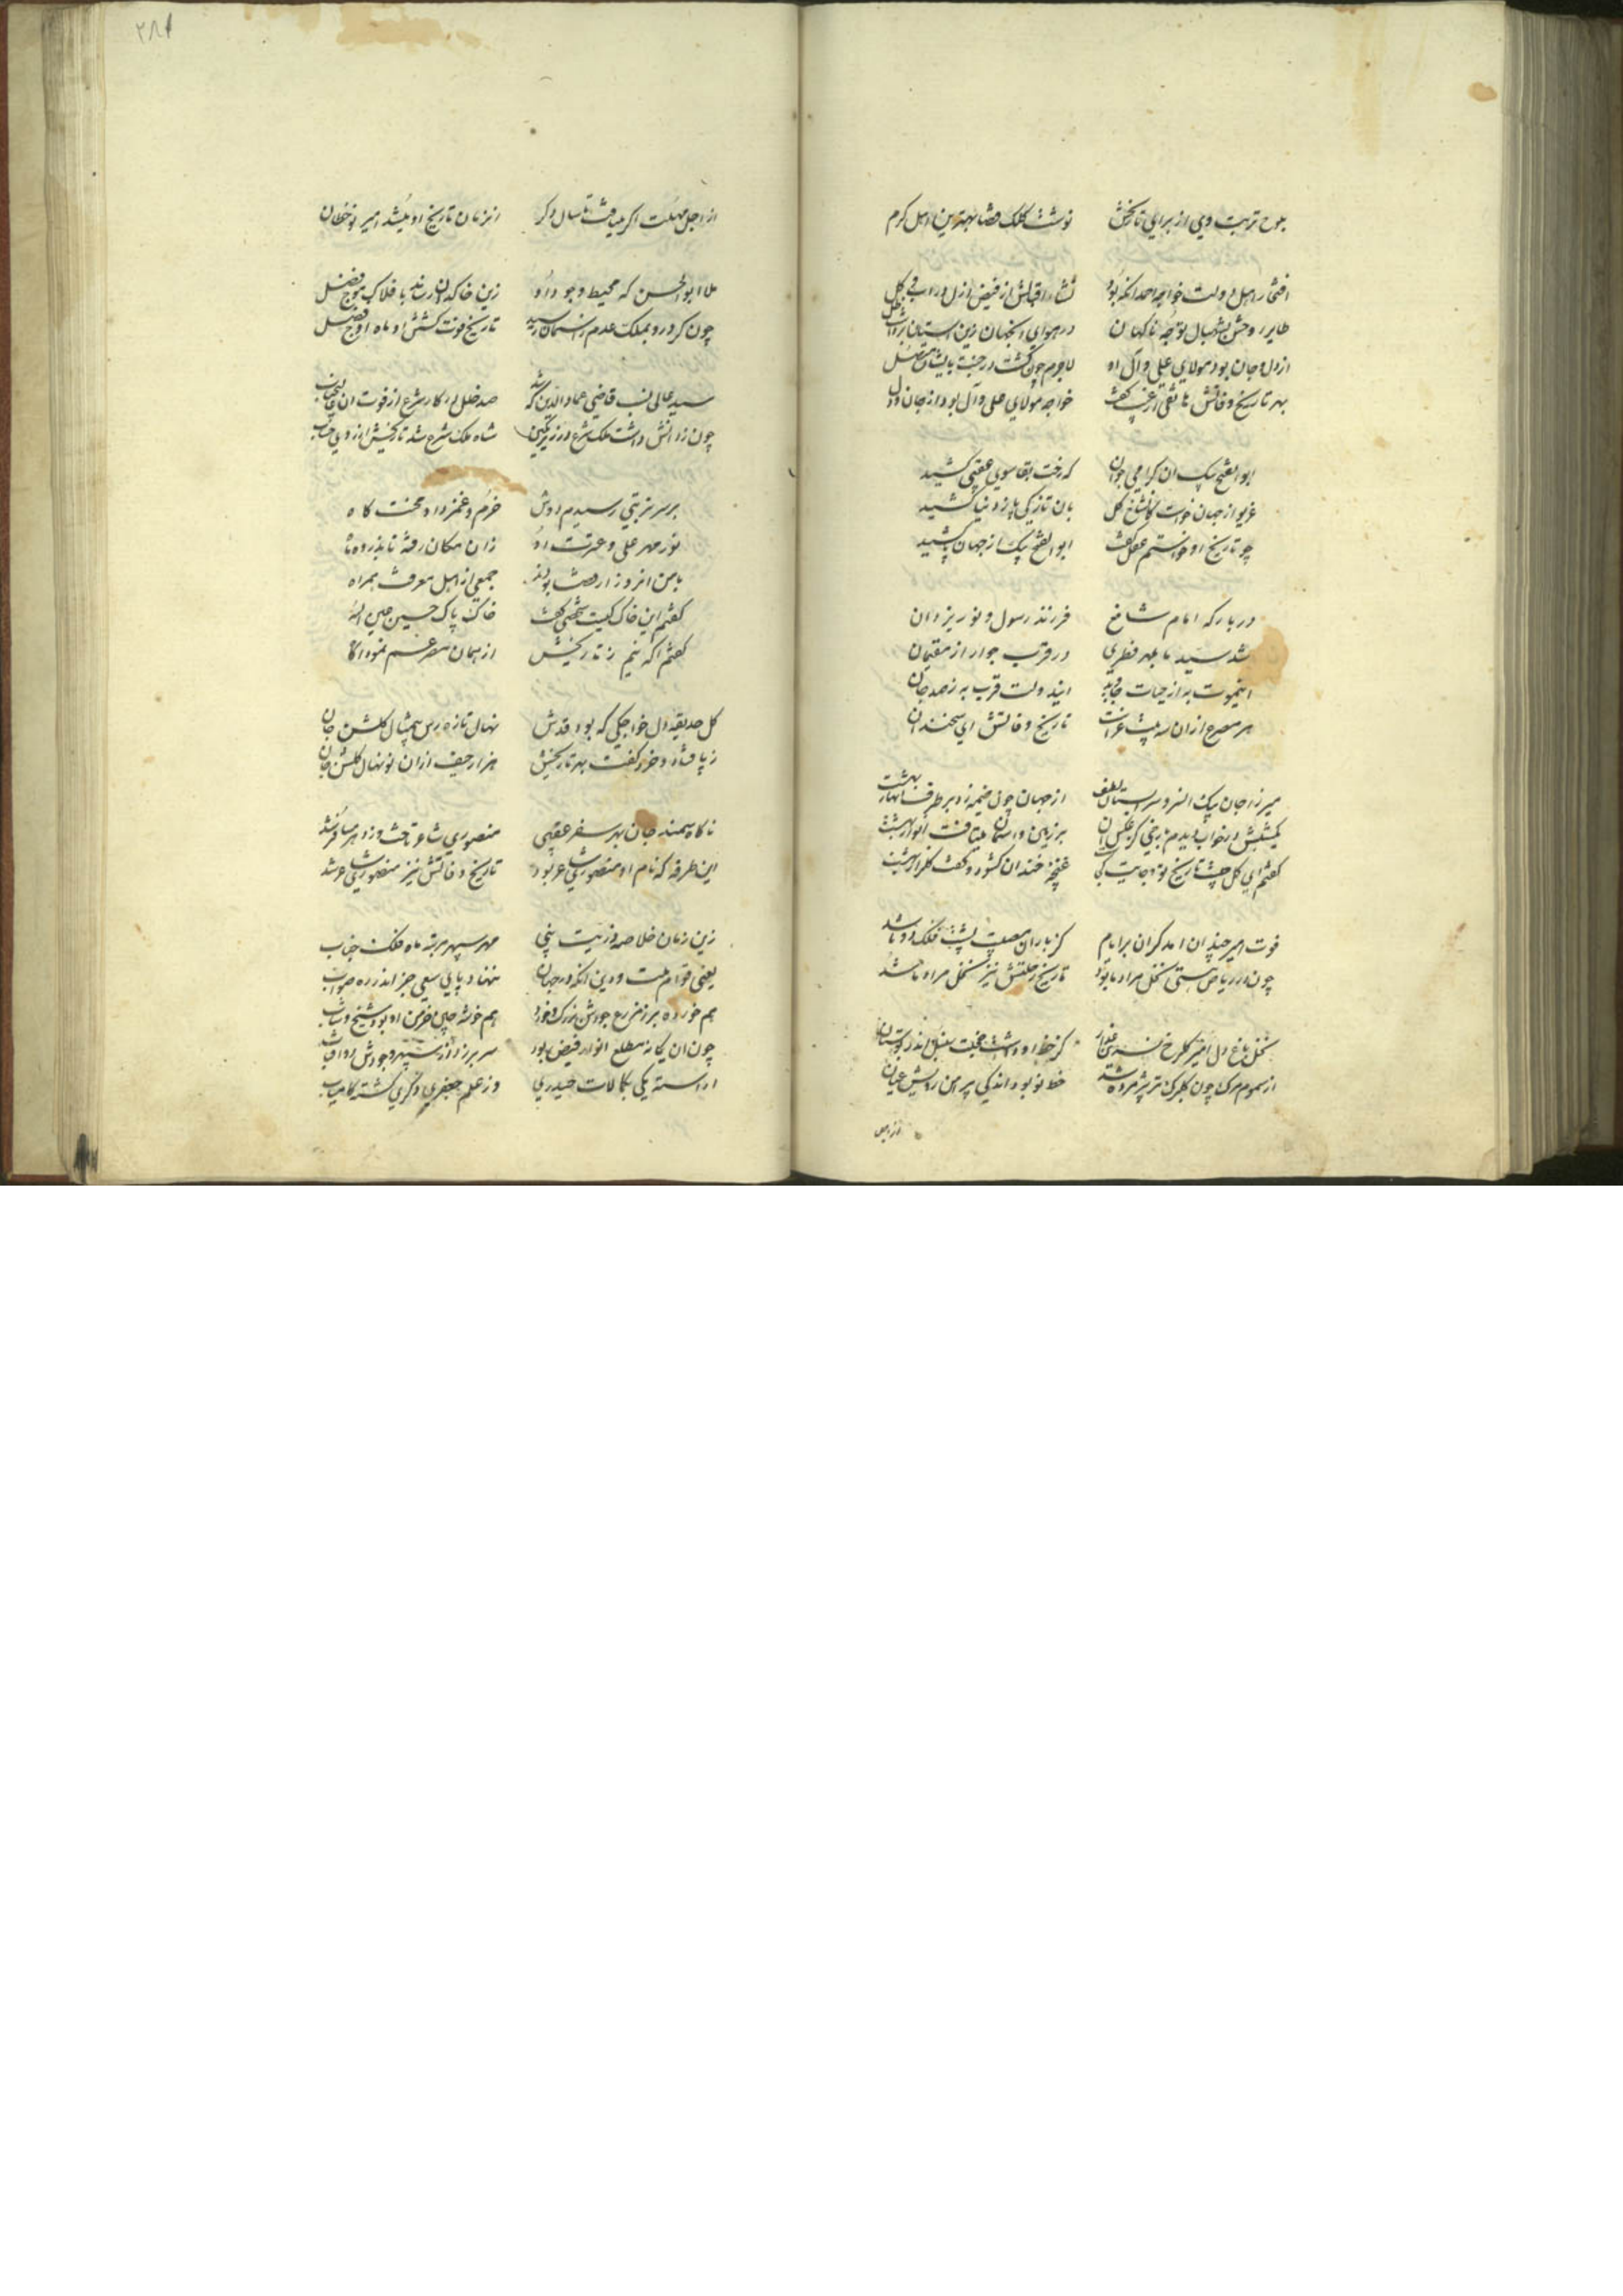 بلوح تربت وی از برای تاریخش نوشت کلک قضا بهترین اهل کرم
افتخار اهل دولت خواجه احمد آنکه بود از فیض ازل در آب و گل
طایر روحش بشهبال توجه ناگهان در هوای آنجهان زین آستان
از دل و جان بود مولای علی و آل او لاجرم چون گشت در جنت متصل
بهر تاریخ وفاتش هاتفی از غیب گفت خواجه مولای علی و آل بود از جان و دل
ابوالفتح بیک آن گرامی جوان که رخت بقا سوی عقبی کشید
غریو از جهان خاست کان شاخ گل بآن تازگی پا ز دنیا کشید
چو تاریخ او خواستم عقل گفت ابوالفتح بیک از جهان پا کشید
در بارگه امام شافع فرزند رسول و نور یزدان
شد سید ما بلهر فطری در قرب جوار از مقیمان
اینموت به از حیات جاوید ایندولت قرب به ز صد جان
هر مصرع از آن سه بیت غراست تاریخ وفاتش ای سخندان
میرزا جان بیک آن سرو سرابستان لطف از جهان چون خیمه زد بر طرف انهار بهشت
یکشبش در خواب دیدم با رخی کز عکس آن بر زمین و آسمان میتافت انوار بهشت
گفتم ای گل چیست تاریخ تو و جایت کجا غنچه خندان گشود و گفت گلزار بهشت
فوت امیر چندان آمد گران بر ایام کز بار آن مصیبت پشت فلک دو تا شد
چون در ریاض هستی نخل مراد ما بود تاریخ رحلتش نیز نخل مراد ما شد
نخل باغ دل امیر گلرخ نسرین عذار کز خط او داشت خجلت سنبل اندر بوستان
از سموم مرگ چون گلبرگ تر پژمرده شد خط نو بود اندکی پیرامن رویش عیان
از اجل
از اجل مهلت اگر مییافت تا سال دگر آنزمان تاریخ او میشد امیر نوخطان
ملا ابوالحسن که محیط وجود او زین خاکدان رساند بافلاک موج فضل
چون کرد رو بملک عدم ز آسمان رسید تاریخ فوت گشتن او ماه اوج فضل
سید عالی نسب قاضی عماد الدین که شد صد خلل در کار شرع از فوت آن عالیجناب
چون ز دانش داشت ملک شرع در زیر نگین شاه ملک شرع شد تاریخش از روی حساب
بر سر تربتی رسیدم دوش خرم و غمزدا و محنت کاه
نور مهر علی و عترت او زان مکان رفته تا بذروه ماه
با من آنروز از قضا بودند جمعی از اهل معرفت همراه
گفتم این خاک کیست شخصی گفت خاک پاک حسین حبی الله
گفتم آگه نیم ز تاریخش از همان مصرعم نمود آگاه
گل حدیقه دل خواجگی که بود قدش نهال تازه رس بیمثال گلشن جان
ز پا فتاد و خرد گفت بهر تاریخش هزار حیف از آن نو نهال گلشن جان
ناگاه سمند جان بهر سفر عقبی منصوری شاعر تاخت وز دهر مسافر شد
این طرفه که نام او منصوری شاعر بود تاریخ وفاتش نیز منصوری شاعر شد
زین زمان خلاصه ذریت نبی مهر سپهر مرتبه ماه فلک جناب
یعنی قوام ملت و دین آنکه در جهان ننهاد پای سعی جز اندر ره صواب
هم خورده بر ز مزرع جودش بزرگ و خورد هم خوشه چین خرمن او بود شیخ و شاب
چون آن یگانه مطلع انوار فیض بود سر بر زد از سپهر وجودش دو آفتاب
آراسته یکی بکمالات حیدری وز علم جعفری دگری گشته کامیاب